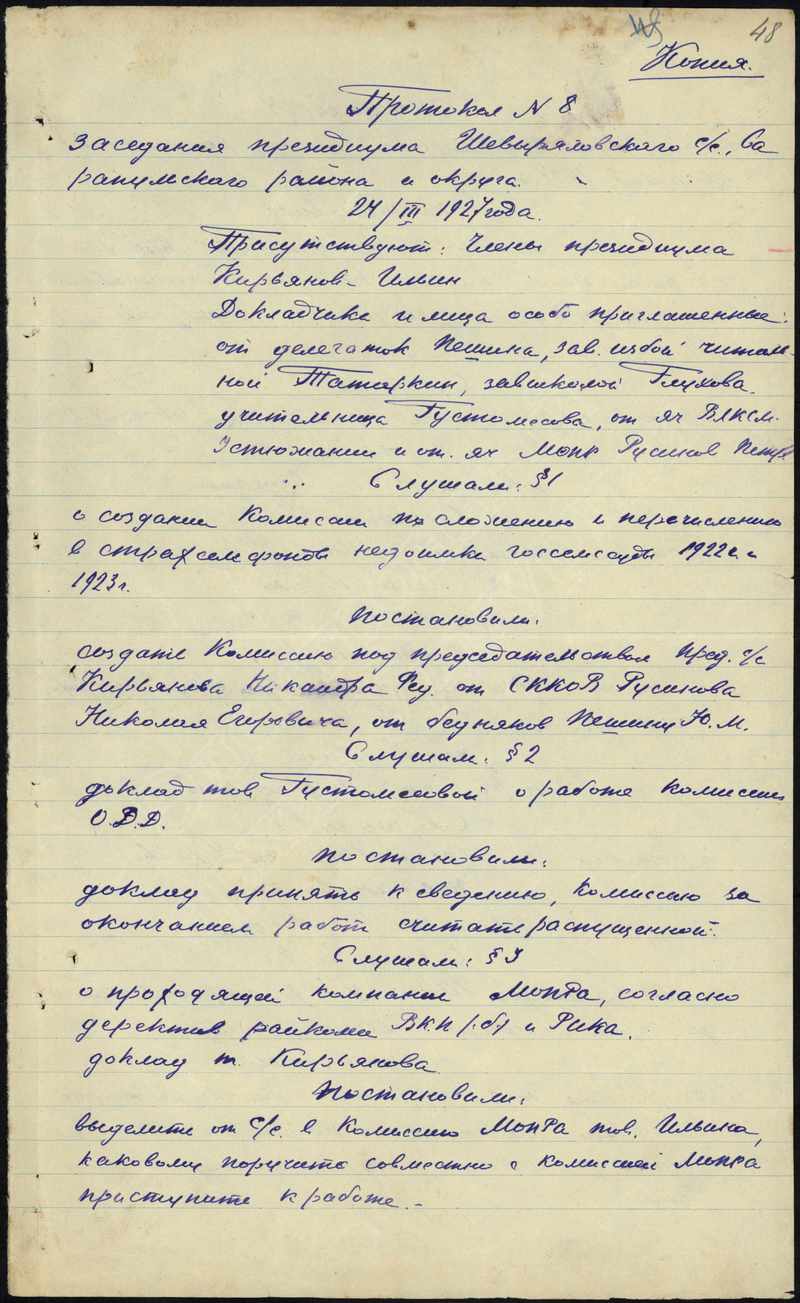 48
Копия.
Протокол N 8
заседания президиума Шевыряловского с/с., Са
рапульского района и округа.
24/III 1927 года.
Присутствуют: Члены президиума
Кирьянов - Ильин
Докладчики и лица особо приглашенные:
от делегаток Пешина, зав. избой читаль-
ной Татаркин, завшколой Глухова.
учительница Густомесова, от яч ВЛКСМ.
Устюжанин и от. яч Мопр Русинов
Слушали: §1
о создании Комиссии по сложению и перечислению
в страхсемфонды недоимки госсемссуды 1922 и
1923 г.
Постановили:
создать Комиссию под председательством пред. с/с
Кирьянова Никандра Фед. от СККОВ Русинова
Николая Егоровича, от бедняков Пешину Ю. М.
Слушали: § 2
доклад тов Густомесовой о работе комиссии
О.Д.Д.
постановили:
доклад принять к сведению, комиссию за
окончанием работ считать распущенной.
Слушали: § 3
о проходящей компании МОПРа, согласно
деректив райкома ВКП(б) и Рика.
доклад т. Кирьянова.
Постановили:
выделить от с/с. в Комиссию МОПРа тов. Ильина,
каковому поручить совместно с комиссией Мопра
приступить к работе. -